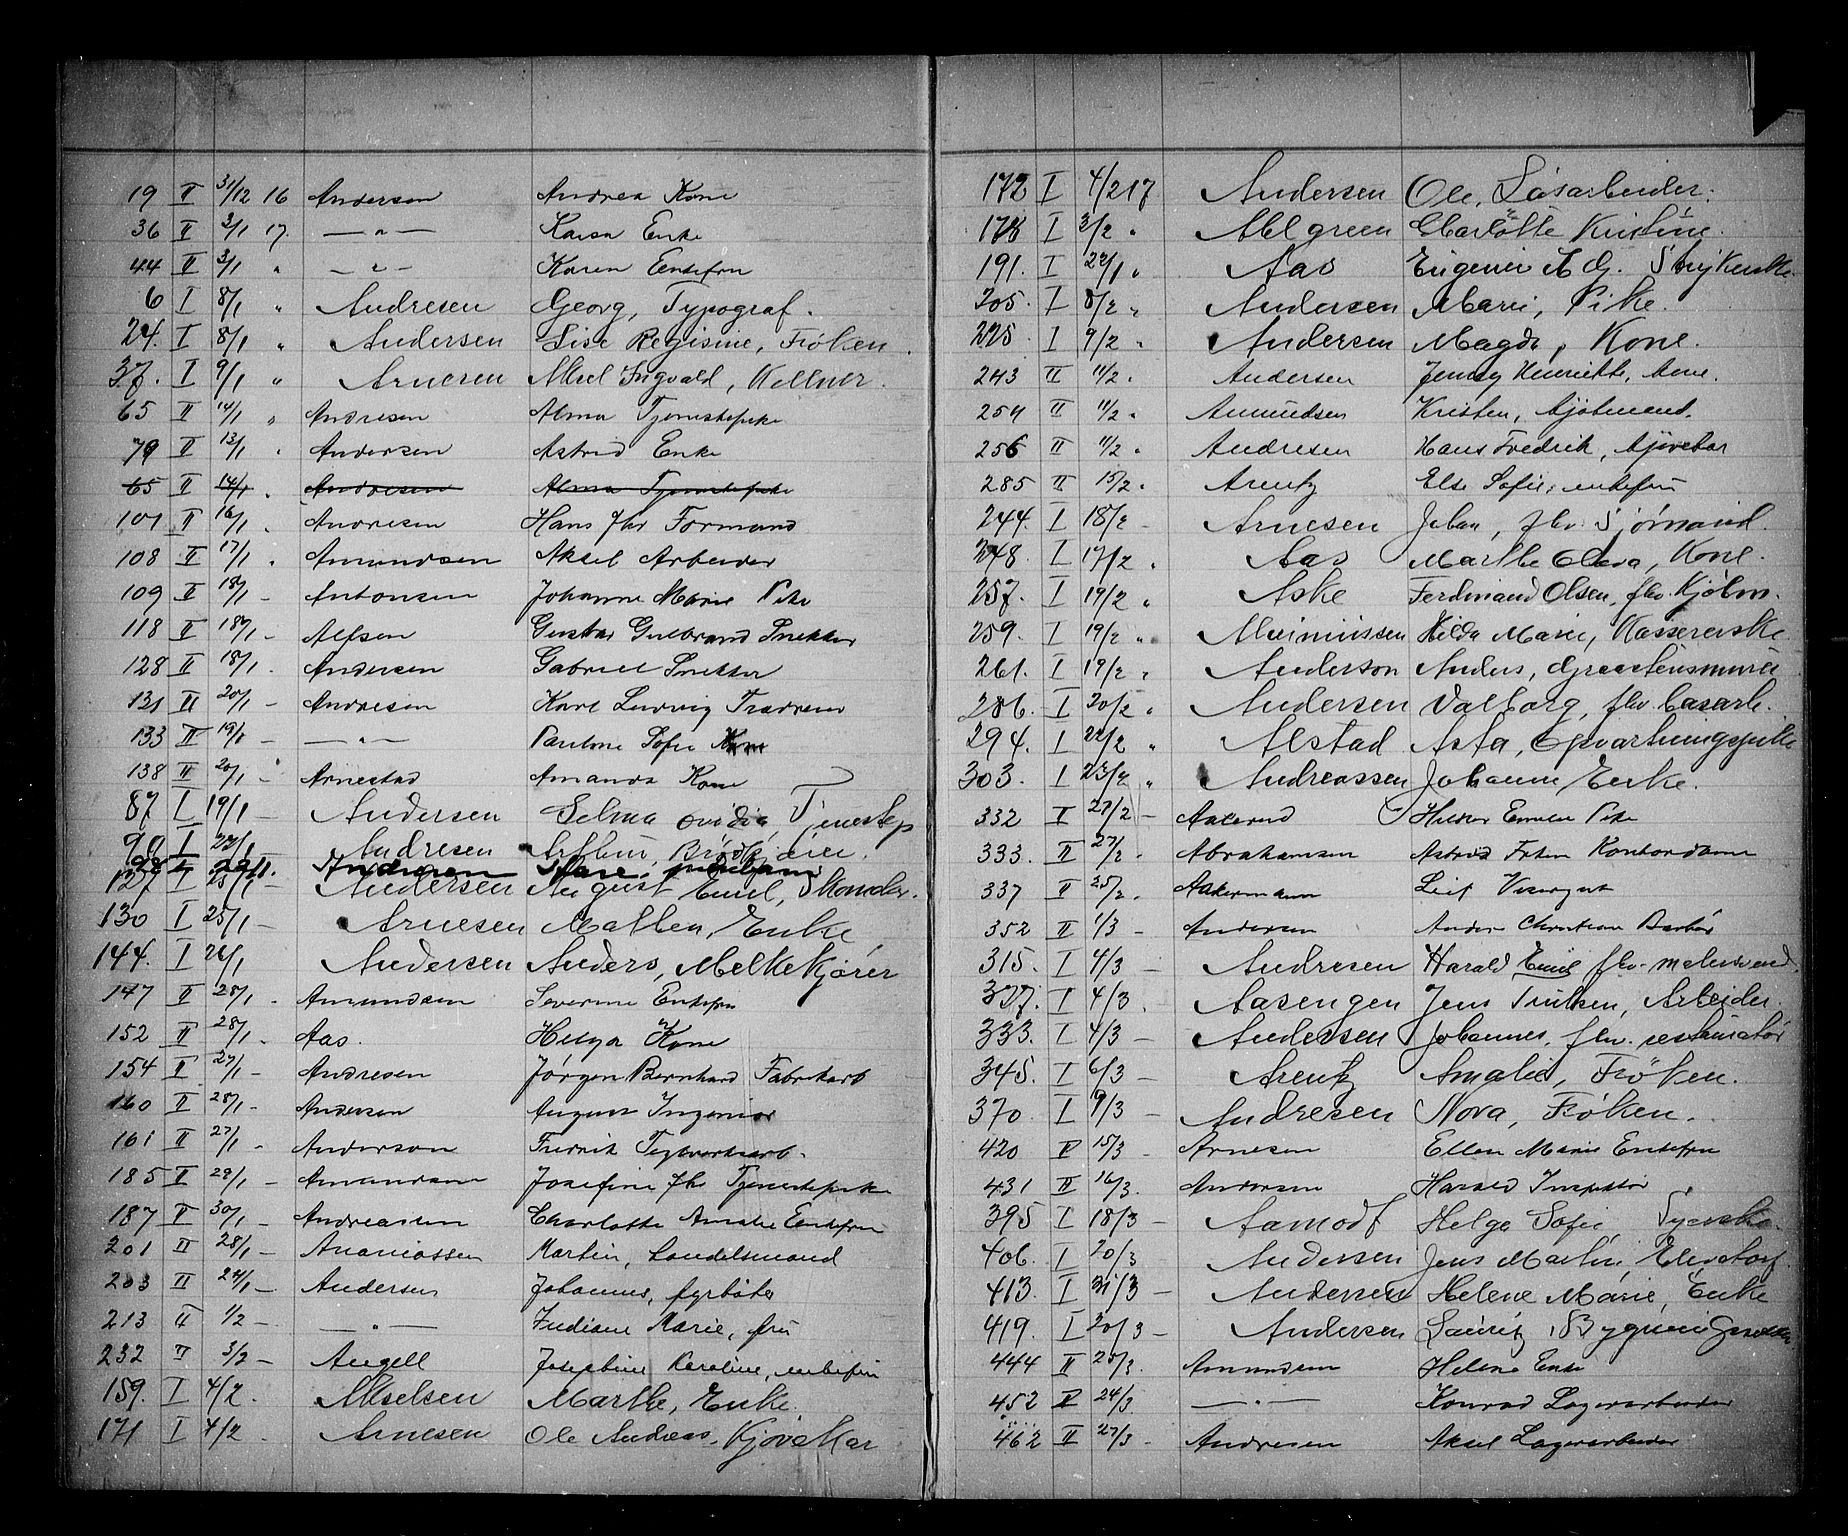 19 II 31/12 16 Andersen Andrea Kone
36 II 2/1 17. —"— Karen Enke
44 II 3/1 " —"— Karen Enkefru
6 I 8/1 " Andresen Georg, Typograf.
24. I 8/1 " Andersen Lise Regisine, Frøken.
37. I 9/1 " Arnesen Aksel Ingvald, Kellner.
65 II 14/1 " Andresen Alma Tjenestepike
79 II 13/1 " Andersen Astrid Enke
65 II 14/1 " Andresen Alma Tjenestepike
101 II 16/1 " Andresen Hans Jhs Formand
108 II 17/1 " Amundsen Aksel Arbeider
109 II 18/1 - Antonsen Johanne Marie Pike
118 II 18/1 - Alfsen Gustav Gulbrand Snekker
128 II 18/1 - Andersen Gabriel Snekker
131 II 20/1 - Andresen Karl Ludvig
133 II 19/1 - —"— Pauline Sofie Kone
138 II 20/1 - Arnestad Amanda Kone
87 I 19/1 Andersen Selma Ovidia, Tjenestep
90 I 22/1 Andresen Arthur,
98 I 22/1. Andresen
127 I 25/1 - Andersen August Emil, Skomaker.
130 I 25/1 - Arnesen Mallen, Enke
144. I 26/1 Andersen Anders, Melkekjører
147 II 28/1 - Amundsen Severine Enkefru
152 II 28/1 - Aas. Helga Kone
154 II 27/1 - Andresen Jørgen Bernhard Fabrikarb
160 II 28/1 - Andersen August Ingeniør
161 II 27/1 - Anderson Fredrik Teglverksarb.
185 II 29/1 - Amundsen Josefine Jhs Tjenestepike
187 II 30/1 - Andreassen Charlotte Amalie Enkefru
201 II 28/1 - Ananiassen Martin, Handelsmand
203 II 24/1 - Andersen Johannes, fyrbøter
213 II 1/2 - —"— Indiane Marie, fru
232 II 3/2 - Angell Josephine Karoline, enkefru
159. I 4/2. Akselsen Marthe, Enke.
171 I 4/2 . Arnesen Ole Andreas, Kjøresvar
172 I 4/2 17. Andersen Ole, Løsarbeider.
178 I 3/2 " Ahlgreen Charlotte Kristine.
191. I 22/1 " Aas Eugenie A G. Strykerske.
205. I 8/2 " Andersen Marie, Pike.
225 I 9/2 " Andersen Magda, Kone.
243 II 11/2 " Andersen Jenny Henriette, Kone.
254 II 11/2 " Amundsen Kristen, Sjømand.
256 II 11/2 " Andresen Hans Fredrik,
285 II 15/2 " Arentz Else Sofie, enkefru
244. I 18/2 - Arnesen Johan, fhv. Sjømand.
248. I 17/2 " Aas Marthe Olava, Kone.
257. I 19/2 " Aske Ferdinand Olsen, fhv. Kjøbm.
259. I 19/2 " Hilda Marie, Kassererske
261. I 19/2 " Anderson Anders, Graastensmurer
286. I 20/2 " Andersen Valborg, fhv.
294. I 22/2 " Alstad Asta, Opvartningspike
303. I 23/2 " Andreassen Johanne Enke.
332 II 27/2 - Aakerud Pike
333. II 27/2 - Abrahamsen Astrid Kontordame
337 II 25/2. Aakermann Leif Visergut
352 II 1/3 - Andersen Anders Christian Barber
315. I 4/3 - Andresen Harald Emil fhv.
327. I 4/3 . Aasengen Jens Trulsen, Arbeider.
333. I 4/3 - Andersen Johannes, fhv. restauratør
345. I 6/3 - Arentz Amalie, Frøken.
370 I 9/3 - Andresen Nora, Frøken.
420 II 15/3 - Arnesen Ellen Marie Enkefru
431 II 16/3. Andersen Harald Inspektør
395 I 18/3 - Aamodt Helga Sofie Syerske.
406. I 20/3 Andersen Jens Martin,
413. I 21/3 - Andersen Helene Marie, Enke
419. I 20/3 - Andersen Lauritz,
444 II 20/3. Amundsen Helene Enke
452 II 24/3 —"— Konrad Lagerarbeider
462 II 27/3 - Andresen Aksel Lagerarbeider